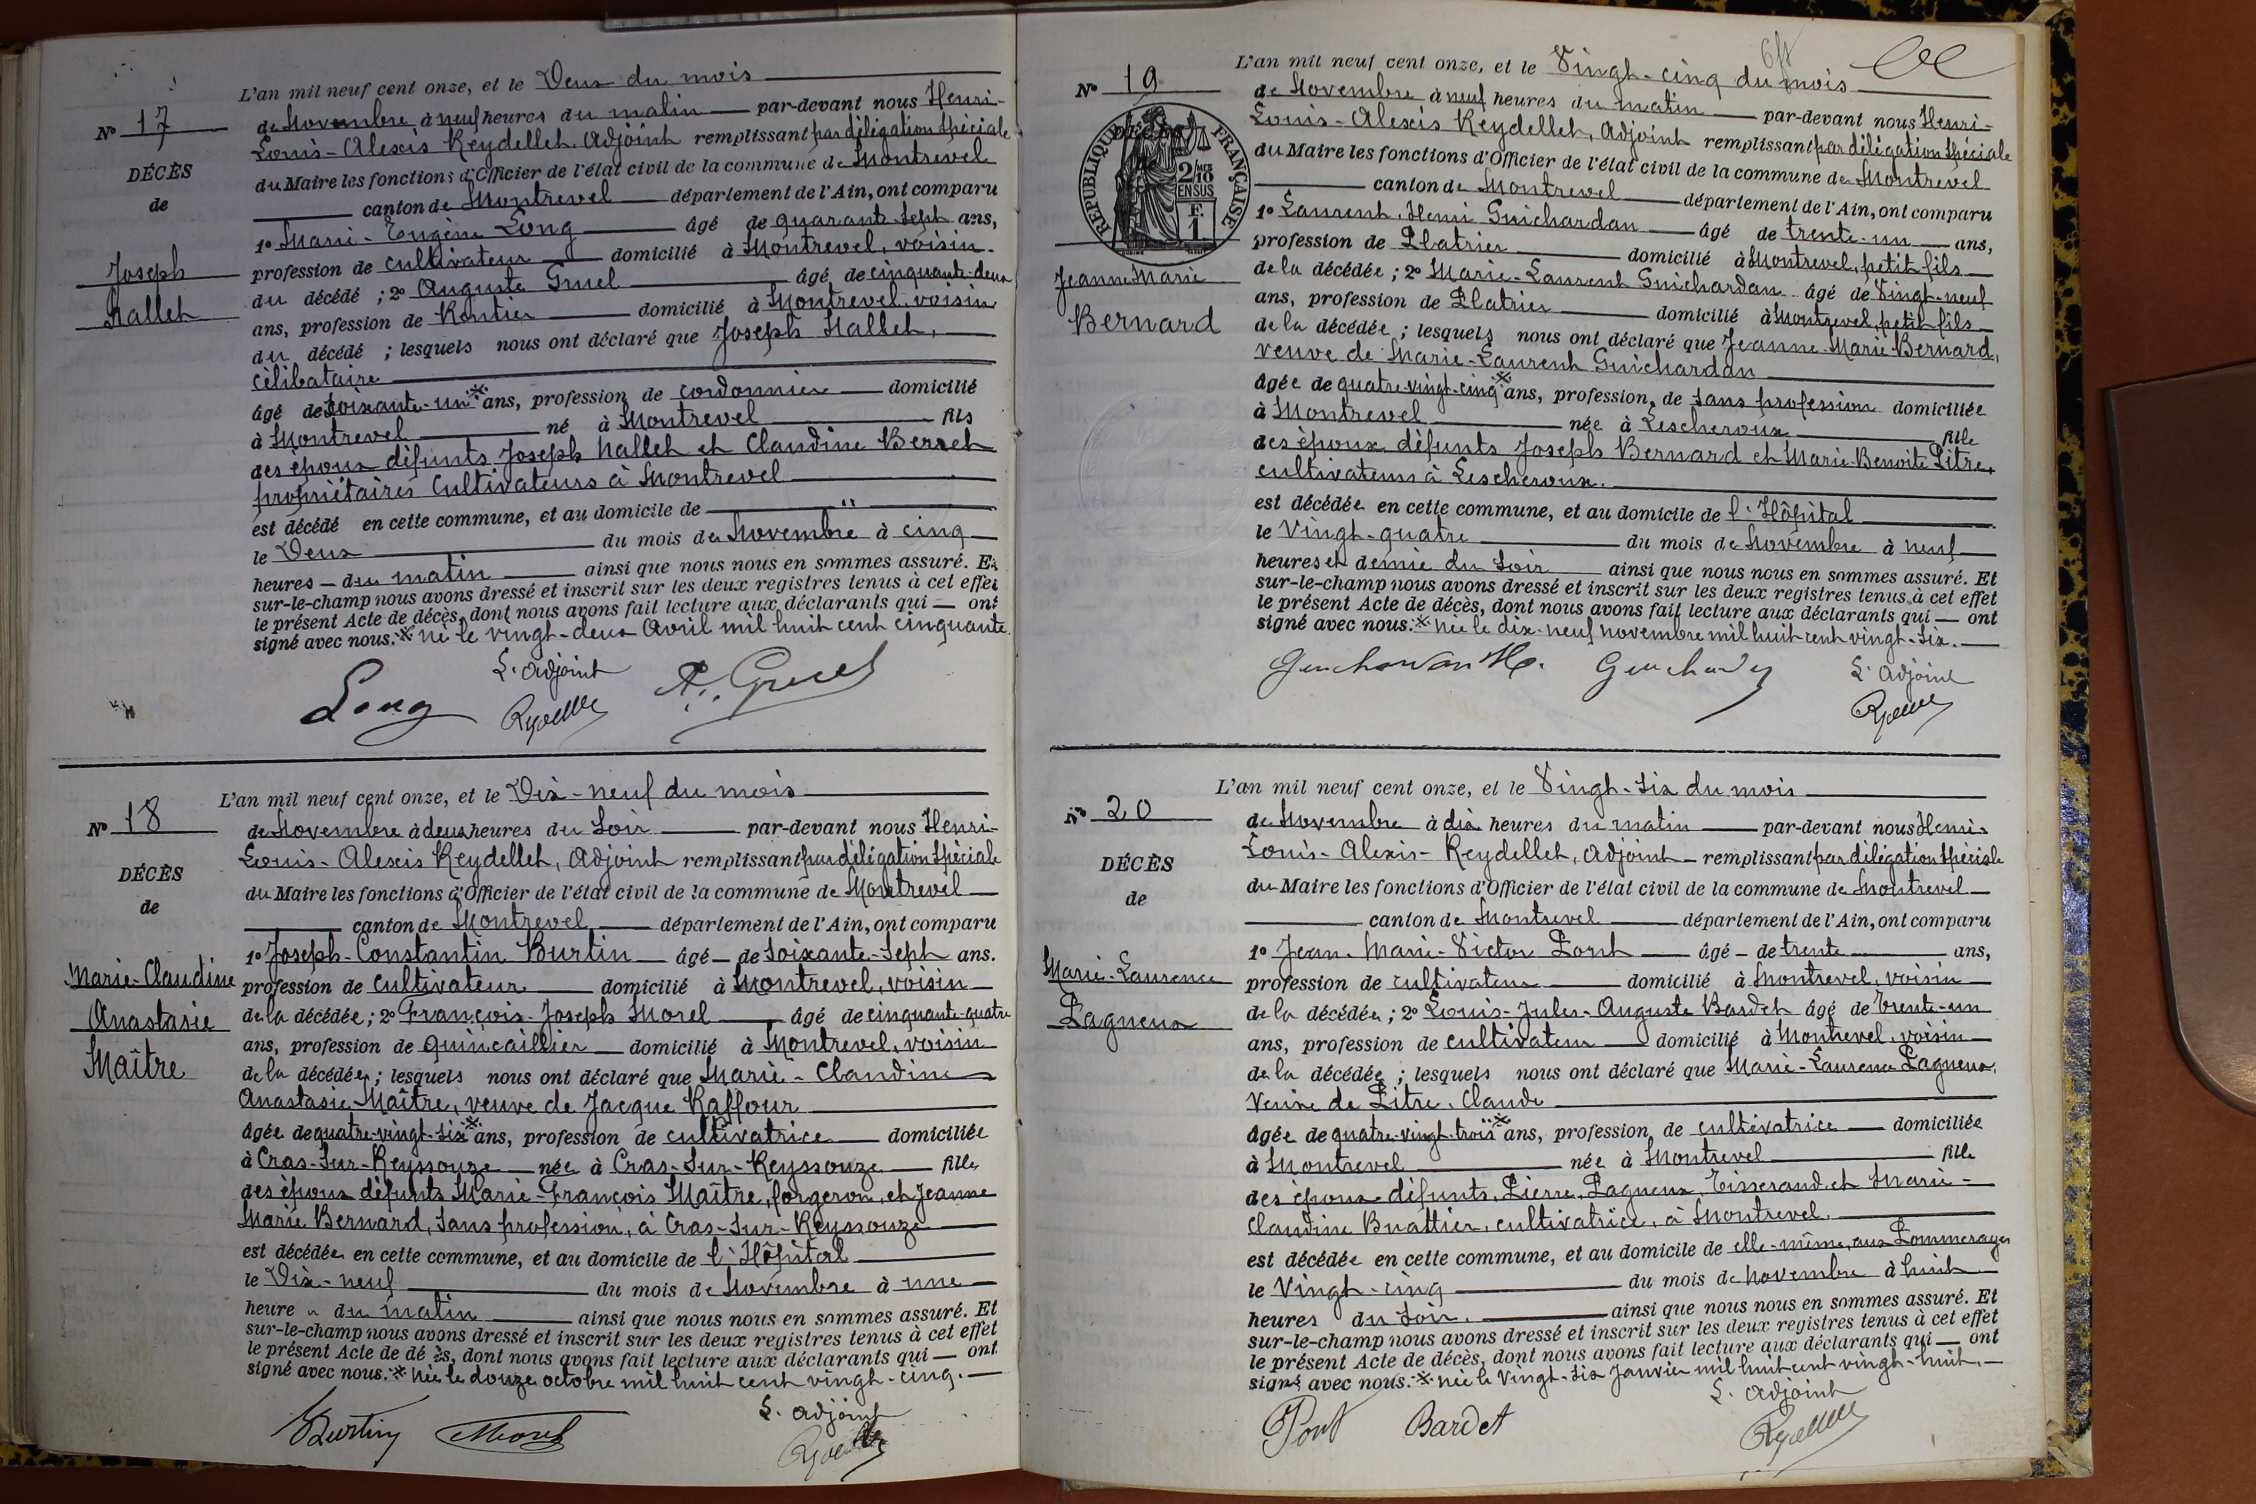 L'an mil neuf cent onze, et le Deux du mois
Nº 17
de Novembre à neuf heures du matin par-devant nous Henri-
Louis-Alexis Reydellet, Adjoint remplissant par délégation spéciale
DÉCÈS
de
du Maire les fonctions d'Officier de l'état civil de la commune de Montrevel
canton de Montrevel département de l'Ain, ont comparu
1º Marie-Eugène Long âgé de quarante-sept ans,
profession de cultivateur domicilié à Montrevel, voisin
Joseph
Hallet
du décédé ; 2º Auguste Gruel âgé de cinquante-deux
ans, profession de Rentier domicilié à Montrevel, voisin
du décédé ; lesquels nous ont déclaré que Joseph Hallet,
célibataire
âgé de soixante-un ※ ans, profession de cordonnier domicilié
à Montrevel né à Montrevel fils
des époux défunts Joseph Hallet et Claudine Berret
propriétaires cultivateurs à Montrevel
est décédé en cette commune, et au domicile de "
le Deux du mois de Novembre à cinq
heures du matin ainsi que nous nous en sommes assuré. Et
sur-le-champ nous avons dressé et inscrit sur les deux registres tenus à cet effet
le présent Acte de décès, dont nous avons fait lecture aux déclarants qui ont
signé avec nous. ※ né le vingt-deux Avril mil huit cent cinquante.
L'adjoint
Long
Reydellet
A. Gruel
L'an mil neuf cent onze, et le Dix-neuf du mois
Nº 18
de Novembre à deux heures du soir par-devant nous Henri-
Louis-Alexis Reydellet, Adjoint remplissant par délégation spéciale
DÉCÈS
de
du Maire les fonctions d'Officier de l'état civil de la commune de Montrevel
canton de Montrevel département de l'Ain, ont comparu
1º Joseph-Constantin Burtin âgé de soixante-sept ans.
Marie-Claudine
Anastasie
Maître
profession de cultivateur domicilié à Montrevel, voisin
de la décédée ; 2º François-Joseph Morel âgé de cinquante-quatre
ans, profession de quincaillier domicilié à Montrevel, voisin
de la décédée ; lesquels nous ont déclaré que Marie-Claudine
Anastasie Maître, veuve de Jacque Raffour
âgée de quatre-vingt-six ※ ans, profession de cultivatrice domiciliée
à Cras-sur-Reyssouze née à Cras-sur-Reyssouze fille
des époux défunts Marie-François Maître, forgeron, et Jeanne
Marie Bernard, sans profession, à Cras-sur-Reyssouze
est décédée en cette commune, et au domicile de l'Hôpital
le Dix-neuf du mois de Novembre à une
heure " du matin ainsi que nous nous en sommes assuré. Et
sur-le-champ nous avons dressé et inscrit sur les deux registres tenus à cet effet
le présent Acte de décès, dont nous avons fait lecture aux déclarants qui ont
signé avec nous. ※ née le douze octobre mil huit cent vingt-cinq.
L'adjoint
Burtin
Morel
Reydellet
L'an mil neuf cent onze, et le Vingt-cinq du mois
Nº 19
de Novembre à neuf heures du matin par-devant nous Henri-
Louis-Alexis Reydellet, Adjoint remplissant par délégation spéciale
RÉPUBLIQUE FRANÇAISE
2/10 EN SUS
F. 1
du Maire les fonctions d'Officier de l'état civil de la commune de Montrevel
canton de Montrevel département de l'Ain, ont comparu
1º Laurent-Henri Guichardan âgé de trente-un ans,
profession de Platrier domicilié à Montrevel, petit fils
Jeanne Marie
Bernard
de la décédée ; 2º Marie-Laurent Guichardan âgé de vingt-neuf
ans, profession de Platrier domicilié à Montrevel, petit fils
de la décédée ; lesquels nous ont déclaré que Jeanne-Marie Bernard,
veuve de Marie-Laurent Guichardan
âgée de quatre-vingt-cinq ※ ans, profession de sans profession domiciliée
à Montrevel née à Lescheroux fille
des époux défunts Joseph Bernard et Marie-Benoite Pitre,
cultivateurs à Lescheroux.
est décédée en cette commune, et au domicile de l'Hôpital
le Vingt-quatre du mois de Novembre à neuf
heures et demie du soir ainsi que nous nous en sommes assuré. Et
sur-le-champ nous avons dressé et inscrit sur les deux registres tenus à cet effet
le présent Acte de décès, dont nous avons fait lecture aux déclarants qui ont
signé avec nous. ※ née le dix-neuf novembre mil huit cent vingt-six.
Guichardan H.
Guichardan
L'adjoint
Reydellet
L'an mil neuf cent onze, et le Vingt-six du mois
Nº 20
de Novembre à dix heures du matin par-devant nous Henri-
Louis-Alexis-Reydellet, Adjoint remplissant par délégation spéciale
DÉCÈS
de
du Maire les fonctions d'Officier de l'état civil de la commune de Montrevel
canton de Montrevel département de l'Ain, ont comparu
1º Jean-Marie-Victor Pont âgé de trente ans,
Marie-Laurence
Pagneux
profession de cultivateur domicilié à Montrevel, voisin
de la décédée ; 2º Louis-Jules-Auguste Bardet âgé de trente-un
ans, profession de cultivateur domicilié à Montrevel, voisin
de la décédée ; lesquels nous ont déclaré que Marie-Laurence Pagneux,
veuve de Pitre, Claude
âgée de quatre-vingt-trois ※ ans, profession de cultivatrice domiciliée
à Montrevel née à Montrevel fille
des époux défunts, Pierre Pagneux, Tisserand, et Marie-
Claudine Buattier, cultivatrice, à Montrevel.
est décédée en cette commune, et au domicile de elle-même, aux Pommerayes
le Vingt-cinq du mois de novembre à huit
heures du soir. ainsi que nous nous en sommes assuré. Et
sur-le-champ nous avons dressé et inscrit sur les deux registres tenus à cet effet
le présent Acte de décès, dont nous avons fait lecture aux déclarants qui ont
signé avec nous. ※ née le vingt-six Janvier mil huit cent vingt-huit.
L'adjoint
Pont
Bardet
Reydellet